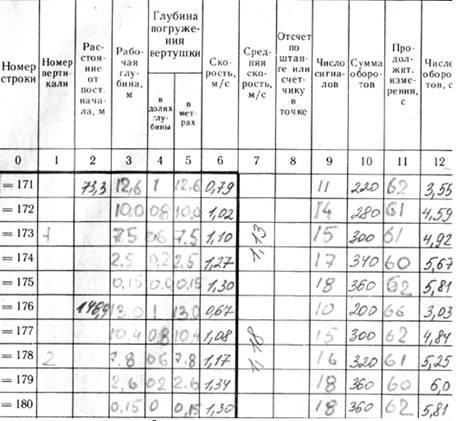 Номер строки | Номер верти- кали | Рас- стоя- ние от пост. нача- ла, м | Рабо- чая глу- бина, м | Глубина погруже- ния вертушки | Ско- рость, м/с | Сред- няя ско- рость, м/с | Отсчет по штан- ге или счет- чику в точке | Число сигна- лов | Сумма оборо- тов | Про- дол- жит. изме- рения, с | Число оборо- тов, с
в долях глу- бины | в мет- рах
0 | 1 | 2 | 3 | 4 | 5 | 6 | 7 | 8 | 9 | 10 | 11 | 12
=171 | 73,3 | 12,6 | 1 | 12,6 | 0,79 | 11 | 220 | 62 | 3,55
=172 | 10,0 | 0,8 | 10,0 | 1,02 | 14 | 280 | 61 | 4,59
=173 | 1 | 7,5 | 0,6 | 7,5 | 1,10 | 1,13 | 15 | 300 | 61 | 4,92
=174 | 2,5 | 0,2 | 2,5 | 1,27 | 17 | 340 | 60 | 5,67
=175 | 0,15 | 0,0 | 0,15 | 1,30 | 18 | 360 | 62 | 5,81
=176 | 146,9 | 13,0 | 1 | 13,0 | 0,67 | 10 | 200 | 66 | 3,03
=177 | 10,4 | 0,8 | 10,4 | 1,08 | 1,18 | 15 | 300 | 62 | 4,84
=178 | 2 | 7,8 | 0,6 | 7,8 | 1,17 | 16 | 320 | 61 | 5,25
=179 | 2,6 | 0,2 | 2,6 | 1,34 | 18 | 360 | 60 | 6,0
=180 | 0,15 | 0 | 0,15 | 1,30 | 18 | 360 | 62 | 5,81